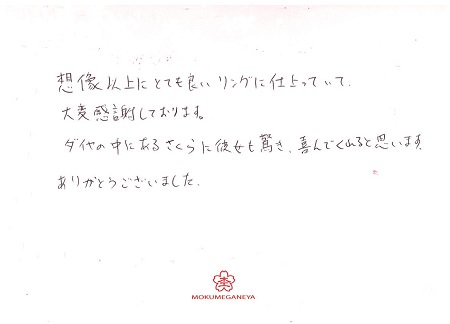 想像以上にとても良いリングに仕上っていて、
大変感謝しております。
ダイヤの中にあるさくらに彼女も驚き、喜んでくれると思います。
ありがとうございました。
MOKUMEGANEYA